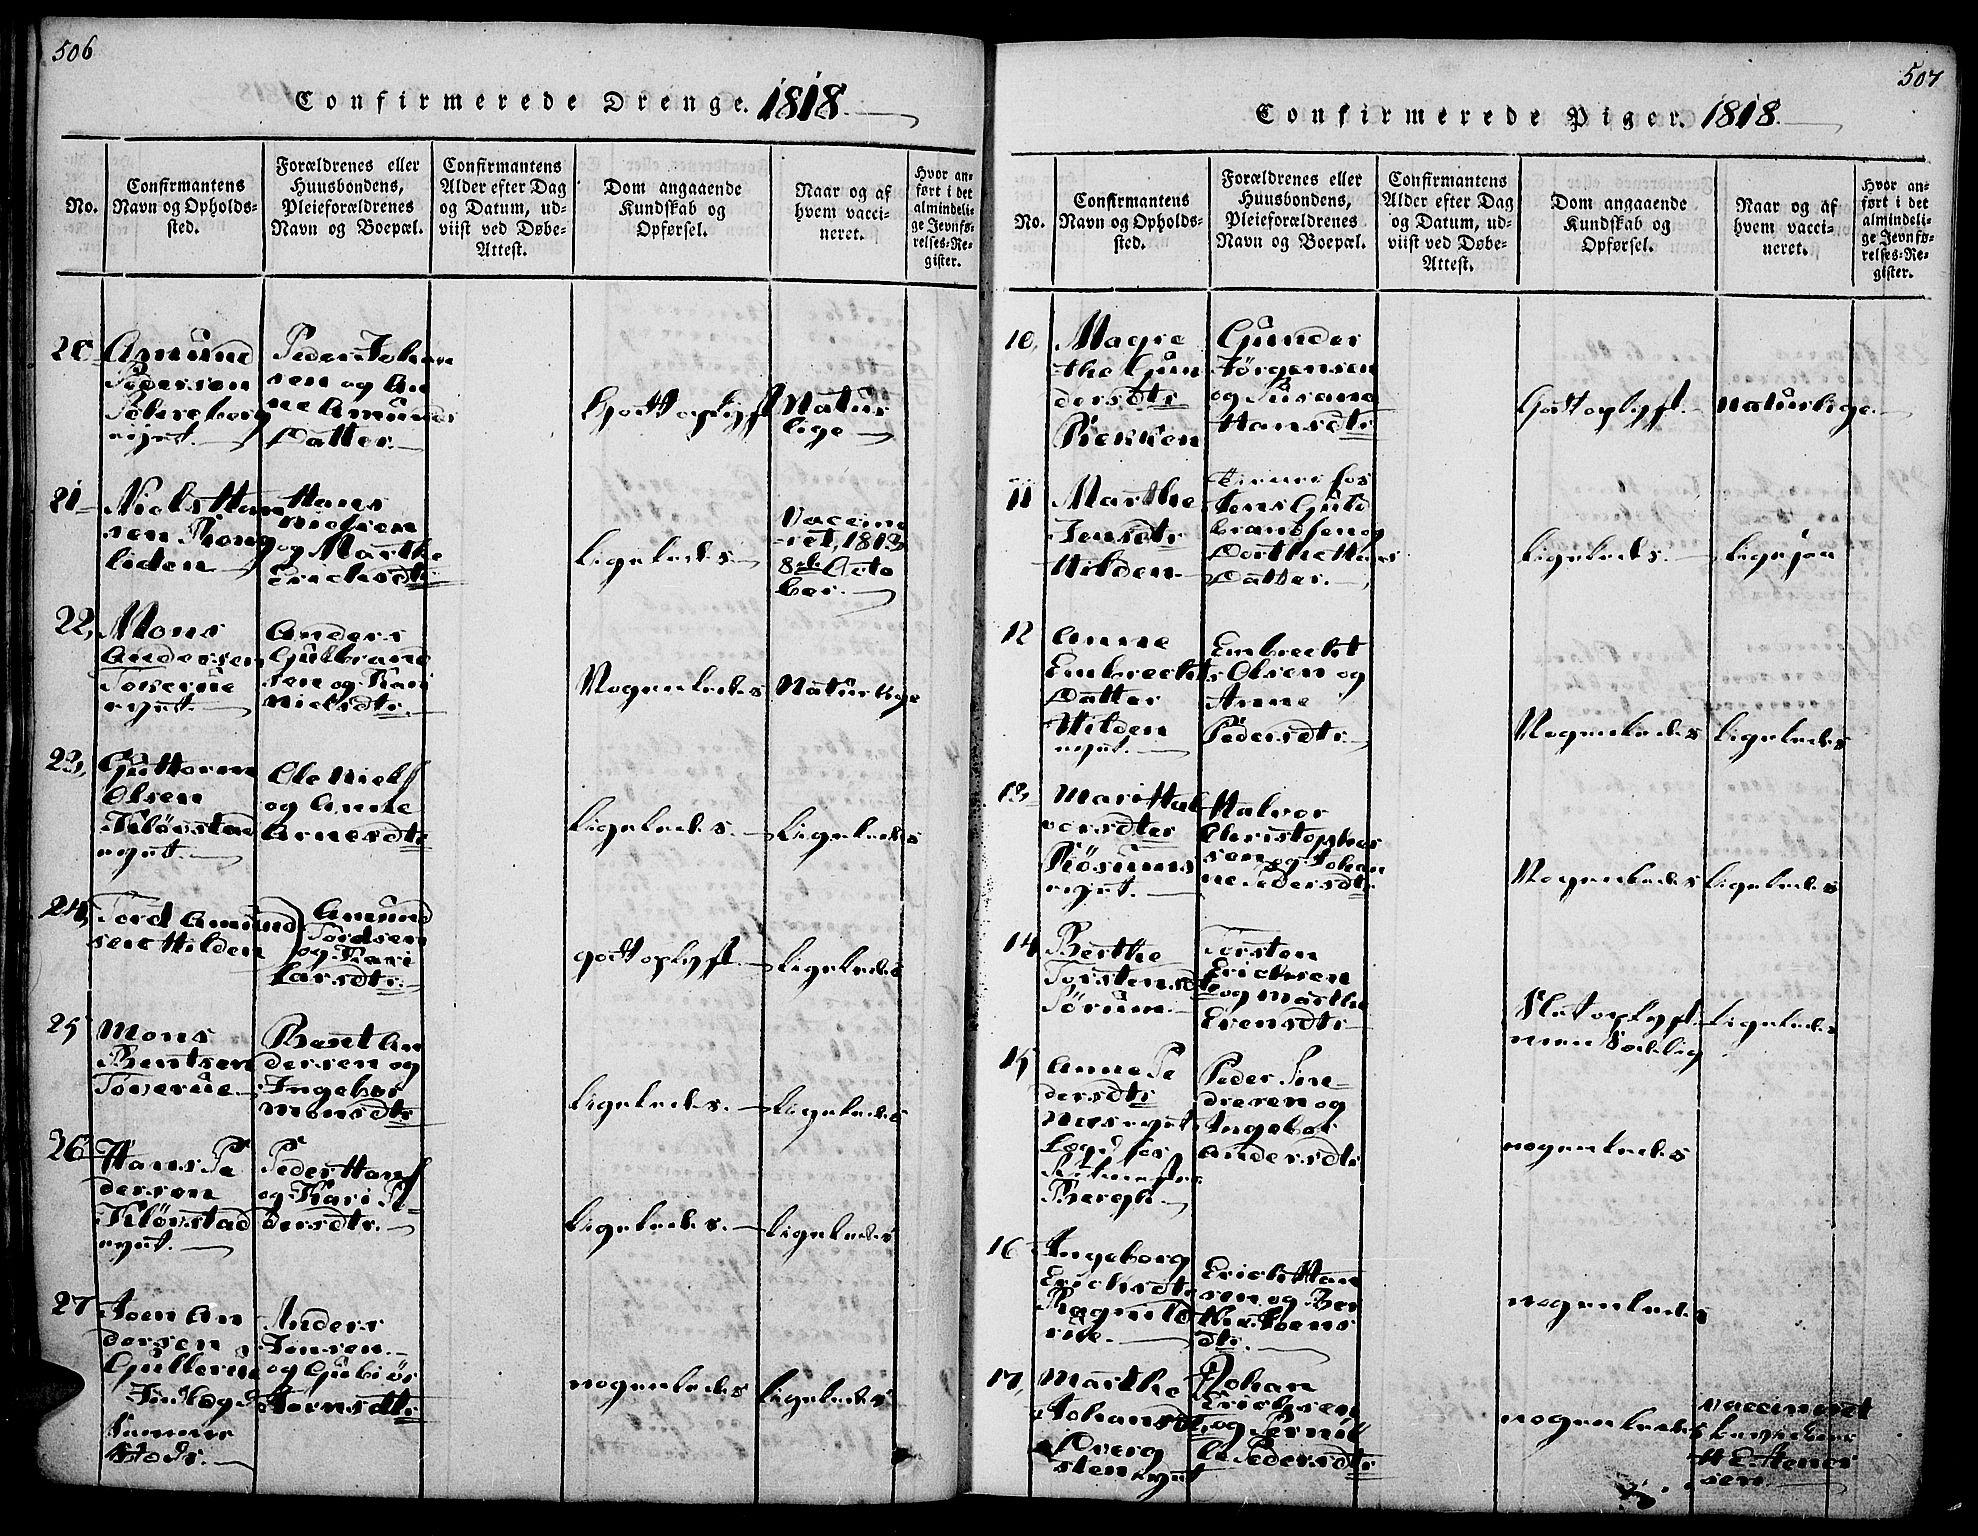 506
Confirmerede Drenge. 1818.
No.
Confirmantens
Navn og Opholds-
sted.
Forældrenes eller
Huusbondens,
Pleieforældrenes
Navn og Boepæl.
Confirmantens
Alder efter Dag
og Datum, ud-
viist ved Døbe-
Attest.
Dom angaaende
Kundskab og
Opførsel.
Naar og af
hvem vacci-
neret.
Hvor an-
ført i det
almindeli-
ge Jevnfø-
relses-Re-
gister.
20
Amund
Pedersen
eyet.
Peder Johan
sen og An
ne Amunds
Datter.
Godt oplyst
Natur
lige
21
Niels Han
sen Rong
liden
Hans
Nielsen
og Marthe
Erichsdtr.
Ligeledes
Vaccine
ret, 1813
8de Octo
ber.
22,
Mons
Andersen
Toverue
eyet.
Anders
Gulbrand
sen og Kari
Nielsdtr.
Nogenledes
Naturlige
23,
Guttorm
Olsen
Kløvstad
eyet.
Ole Niels
og Anne
Arnesdtr
Ligeledes.
Ligeledes
24,
Tord Amund
sen Hilden
Amund
Tordsen
og Kari
Larsdtr.
godt oplyst.
Ligeledes
25
Mons
Bentsen
Toverue.
Bent An
dersen og
Ingebor
Monsdtr
Ligeledes.
Ligeledes
26
Hans Pe
dersen
Kløvstad
eyet.
Peder Hans
og Kari Pe
dersdtr.
Ligeledes.
Ligeledes
27
Joen An
dersen
Gullerue
Anders
Jensen.
og Gubiør
nogenledes
Ligeledes
507
Confirmerede Piger. 1818.
No.
Confirmantens
Navn og Opholds-
sted.
Forældrenes eller
Huusbondens,
Pleieforældrenes
Navn og Boepæl.
Confirmantens
Alder efter Dag
og Datum, ud-
viist ved Døbe-
Attest.
Dom angaaende
Kundskab og
Opførsel.
Naar og af
hvem vacci-
neret.
Hvor an-
ført i det
almindeli-
ge Jevnfø-
relses-Re-
gister.
10,
Magre
the Gun
dersdtr
Rekken
Gunder
Jørgensen
og Susane
Hansdtr
Godt oplyst.
Naturlige.
11
Marthe
Jensdtr
Hilden
Jens Guld
brandsen og
Dorthe Hans
Datter.
Ligeledes.
Ligesaa
12
Anne
Embrechts
Datter
Hilden
eyet.
Embrecht
Olsen og
Anne
Pedersdtr.
Nogenledes
Ligeledes
13,
Mari Hal
vorsdter
Røsums
eyet.
Halvor
Christopher
sen og Johan
ne Pedersdtr
Nogenledes
Ligeledes
14
Berthe
Torstensdtr
Sørum
Torsten
Erichsen
og Marthe
Evensdtr
Slet oplyst
men Sædelig
Ligeledes
15
Anne Pe
dersdtr
Bergh.
Peder
dresen og
Ingebor
Andersdtr
nogenledes
16
Ingeborg
Erichsdtr
Ragnild
rue.
Erich Han
sen og Ber
the Joens
dtr.
nogenledes
17,
Marthe
Johansdtr
Overg
sten eyet
Johan
Erichsen
og Pernil
le Pedersdtr
nogenledes
Vaccineret
sen